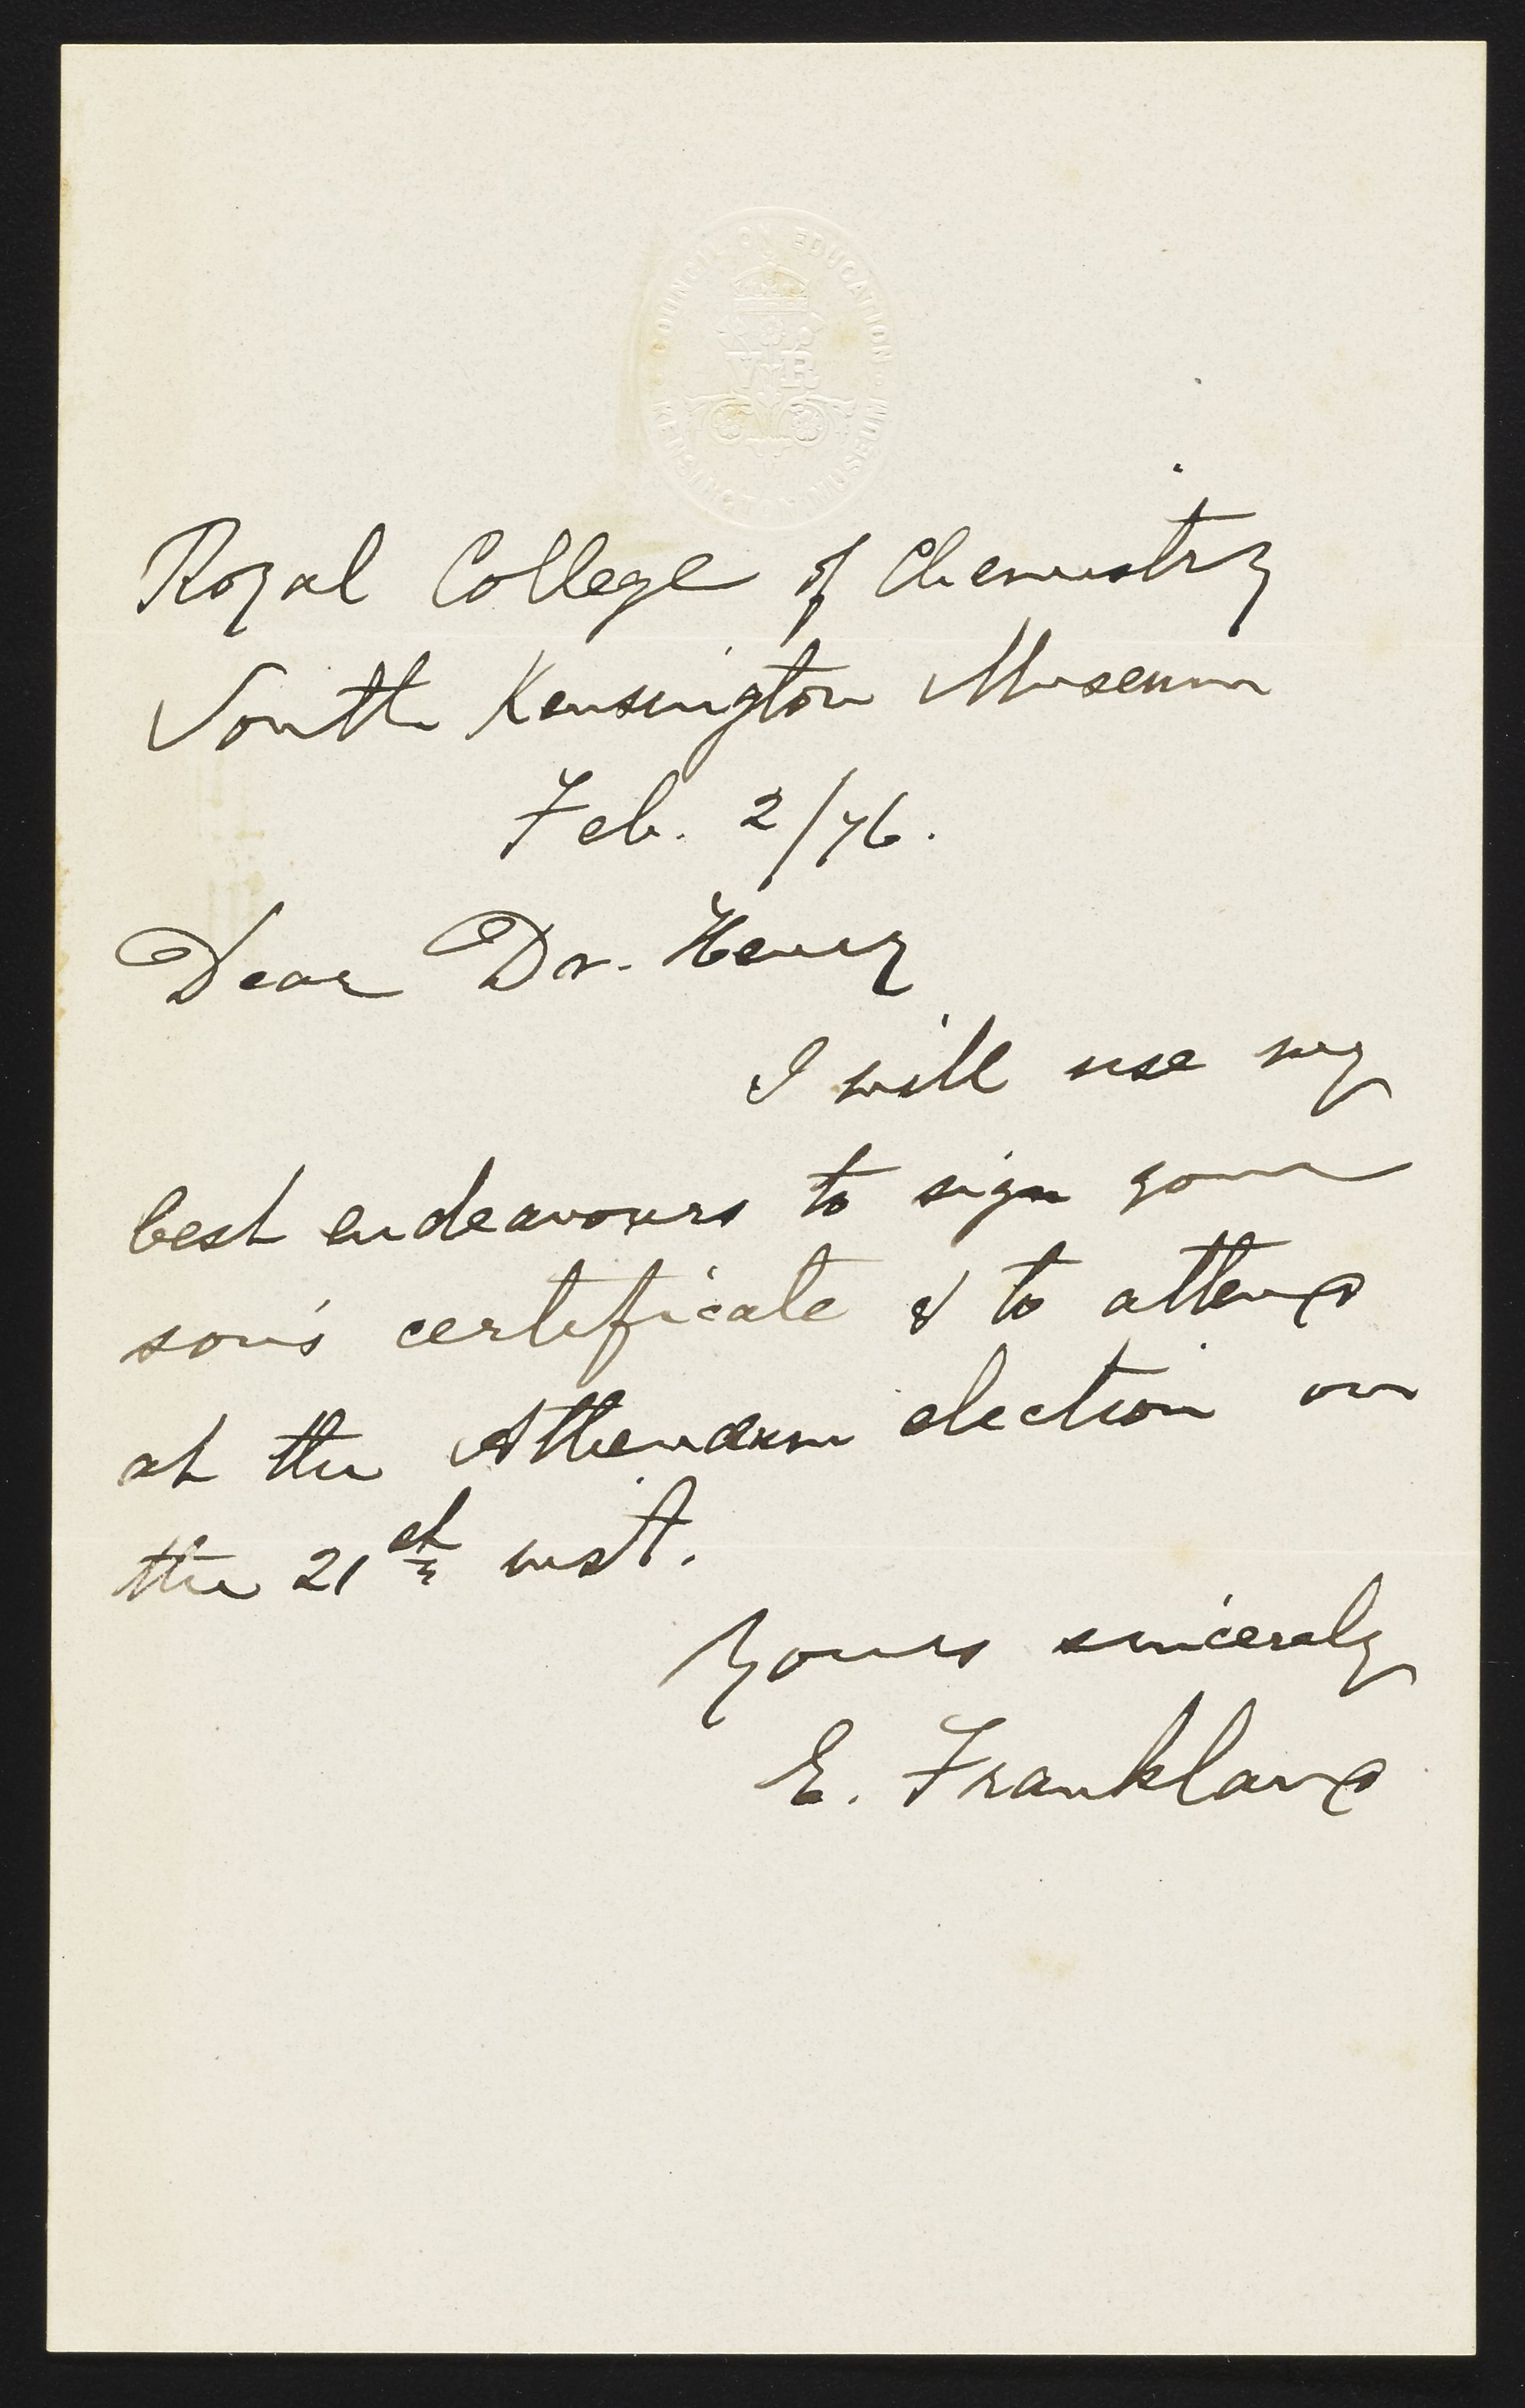 COUNCIL ON EDUCATION
V R
KENSINGTON MUSEUM
Royal College of Chemistry
South Kensington Museum
Feb. 2/76.
Dear Dr. Henry
I will use my
best endeavours to sign your
son's certificate & to attend
at the Athenæum election on
the 21st inst.
Yours sincerely
E. Frankland